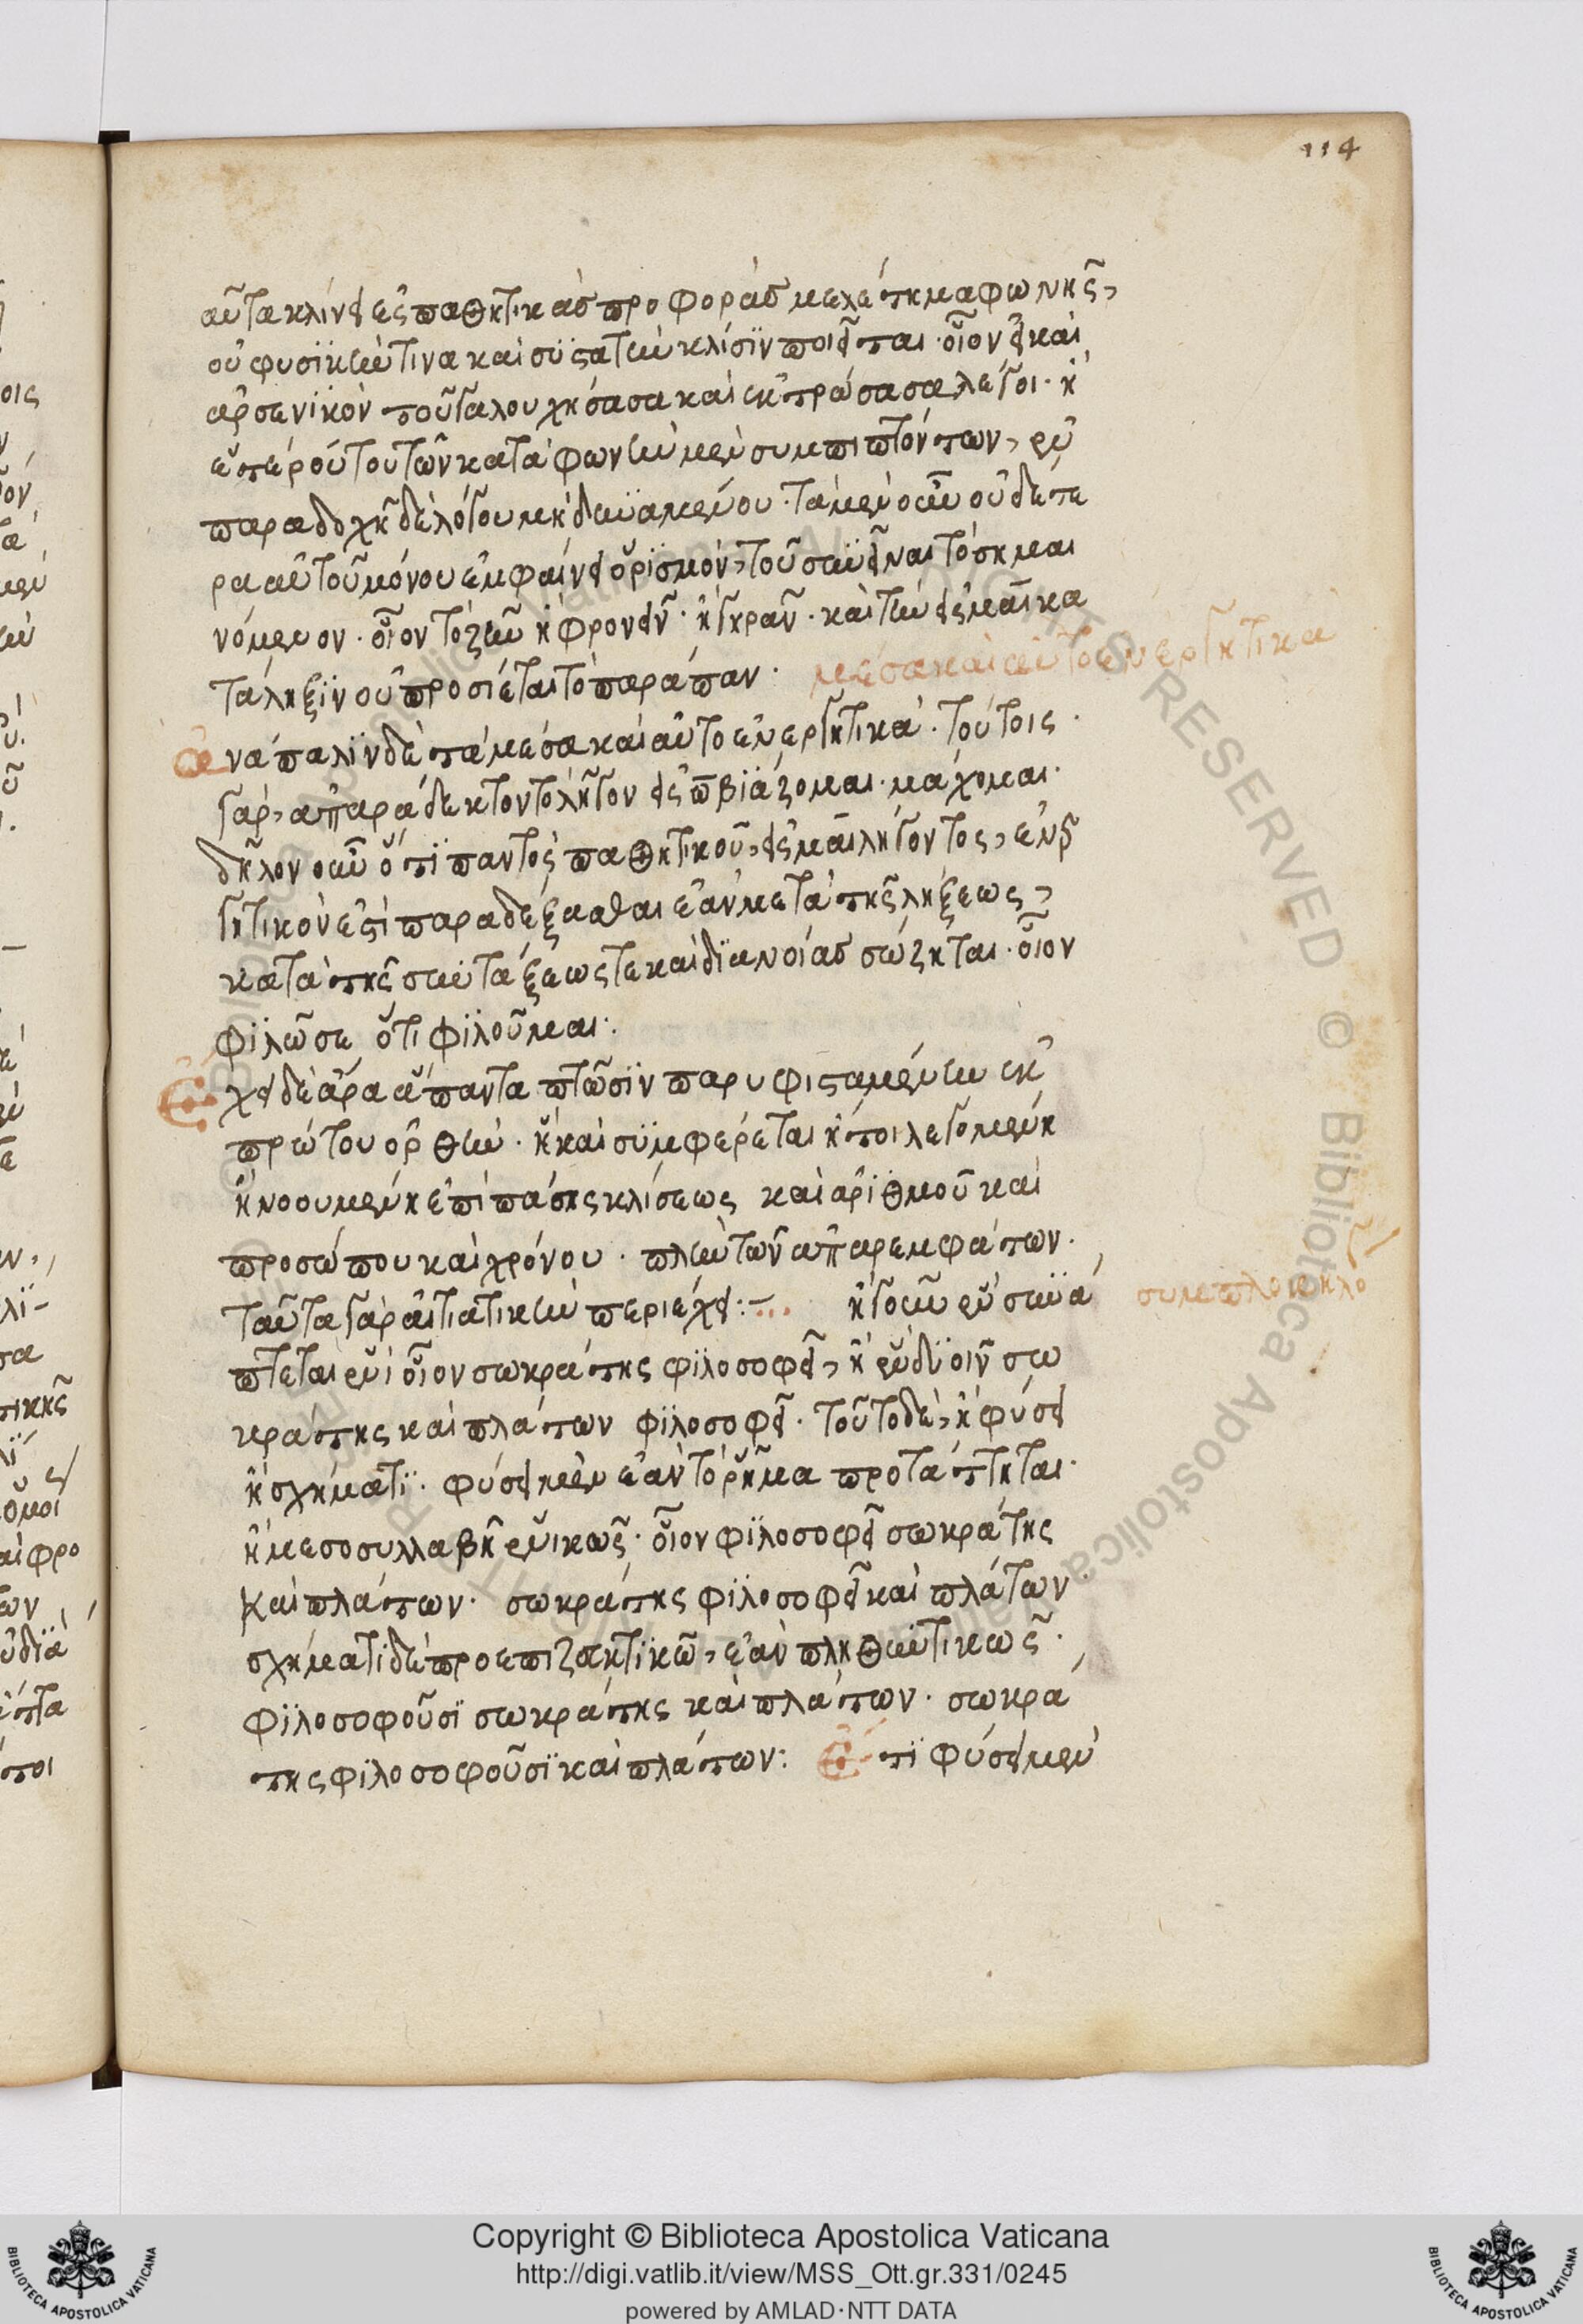 114
αὐτὰ κλίνει εἰς παθητικὰς προφορὰς μελετήμα φωνῆς,
οὐ φυσικήν τινα καὶ συστατὴν κλίσιν ποιεῖται. οἷον εἰ καὶ
ἀρσενικὸν τοῦ γαλουχήσασα καὶ ἐκτρώσασα λέγοι. ἢ
ἑτέρου τούτων κατὰ φωνὴν μὲν συμπιπτόντων, ἐν
παραδοχῇ δὲ λόγου μὴ δυναμένου. τὰ μὲν οὖν οὐδετε
ρα αὐτοῦ μόνου ἐμφαίνει ὁρισμὸν, τοῦ συνεῖναι τὸ σημαι
νόμενον. οἷον τὸ ζῆν ἢ φρονεῖν. ἢ γηρᾶν. καὶ τὴν εἰς μαι κα
τάληξιν οὐ προσίεται τὸ παράπαν.
μέσα καὶ αὐτοενεργητικά
ἀνάπαλιν δὲ τὰ μέσα καὶ αὐτοενεργητικά. τούτοις
γὰρ, ἀπαράδεκτον τὸ λῆγον εἰς ω βιάζομαι. μάχομαι.
δῆλον οὖν ὅτι παντὸς παθητικοῦ, εἰς μαι λήγοντος, ἐνερ
γητικόν ἐστι παραδέξασθαι ἐὰν μετὰ τῆς λήξεως,
κατὰ τῆς συντάξεώς τε καὶ διανοίας σώζηται. οἷον
φιλῶ σε ὅτι φιλοῦμαι:
Ἔχει δὲ ἆρα ἅπαντα πτῶσιν παρυφισταμένην ἐκ
πρώτου ὀρθήν. ἢ καὶ συμφέρεται ἤτοι λεγομένη
ἢ νοουμένη ἐπὶ πάσης κλίσεως καὶ ἀριθμοῦ καὶ
προσώπου καὶ χρόνου. πλὴν τῶν ἀπαρεμφάτων.
ταῦτα γὰρ αἰτιατικὴν περιέχει:– ἤγουν ἓν συνά
πτεται ἑνὶ οἷον σωκράτης φιλοσοφεῖ, ἢ ἓν δυοῖν σω
κράτης καὶ πλάτων φιλοσοφεῖ. τοῦτο δὲ, ἢ φύσει
ἢ σχήματι. φύσει μὲν ἐὰν τὸ ῥῆμα προτάττηται.
ἢ μεσοσυλλαβῇ ἑνικῶς. οἷον φιλοσοφεῖ σωκράτης
καὶ πλάτων. σωκράτης φιλοσοφεῖ καὶ πλάτων.
σχήματι δὲ προεπιζακτικῶ, ἐὰν πληθυντικῶς.
φιλοσοφοῦσι σωκράτης καὶ πλάτων. σωκρά
της φιλοσοφοῦσι καὶ πλάτων: Ἔτι φύσει μὲν
Copyright © Biblioteca Apostolica Vaticana
http://digi.vatlib.it/view/MSS_Ott.gr.331/0245
powered by AMLAD·NTT DATA
BIBLIOTECA APOSTOLICA VATICANA
BIBLIOTECA APOSTOLICA VATICANA